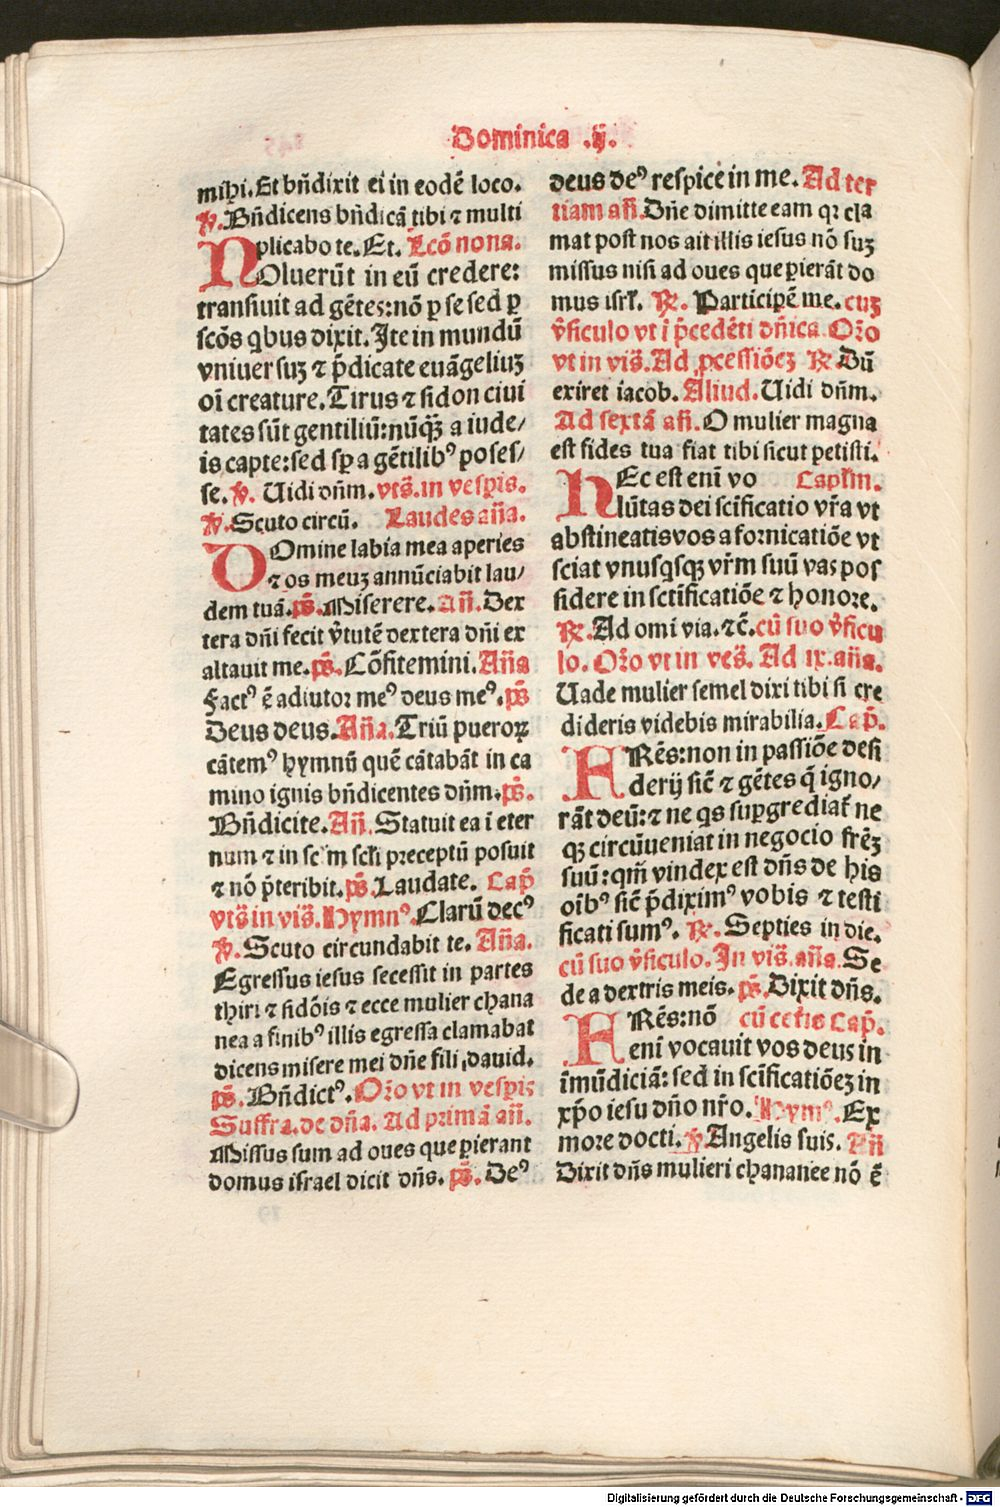 Dominica .ij.
mihi. Et bñdixit ei in eodẽ loco.
℣. Bñdicens bñdicã tibi ⁊ multi
plicabo te. Et. Lcõ nona.
NOluerũt in eũ credere:
transiuit ad gẽtes: nõ ꝑ se sed ꝑ
scõs qbus dixit. Ite in mundũ
vniuersuȝ ⁊ p̃dicate euãgeliuȝ
oĩ creature. Tirus ⁊ sidon ciui
tates sũt gentiliũ: nũq̃ȝ a iude/
is capte: sed sꝑ a gẽtilibꝰ poses/
se. ℣. Uidi dñm. vts̃. in vesꝑis.
℣. Scuto circũ. Laudes añа.
DOmine labia mea aperies
⁊ os meuȝ annũciabit lau/
dem tuã. ps̃. Miserere. Añ. Dex
tera dñi fecit v̓tutẽ dextera dñi ex
altauit me. ps̃. Cõfitemini. Aña
Factꝰ ẽ adiutor meꝰ deus meꝰ. ps̃
Deus deus. Aña. Triũ pueroꝝ
cãtemꝰ hymnũ quẽ cãtabãt in ca
mino ignis bñdicentes dñm. ps̃.
Bñdicite. Añ. Statuit ea i eter
num ⁊ in sc̃m scłi preceptũ posuit
⁊ nõ p̃teribit. ps̃. Laudate. Cap̃
vts̃ in vis̃. Hymnꝰ. Clarũ decꝰ
℣. Scuto circundabit te. Aña.
Egressus iesus secessit in partes
thiri ⁊ sidõis ⁊ ecce mulier chana
nea a finibꝰ illis egressa clamabat
dicens misere mei dñe fili dauid.
ps̃. Bñdictꝰ. Oȓo vt in vesꝑis
Suffra. de dña. Ad primã añ.
Missus sum ad oues que ꝑierant
domus israel dicit dñs. ps̃. Deꝰ
deus deꝰ respice in me. Ad ter
tiam añ. Dñe dimitte eam qꝛ cla
mat post nos ait illis iesus nõ suȝ
missus nisi ad oues que ꝑierãt do
mus isrł. ℟. Participẽ me. cuȝ
v̓siculo vt i p̃cedẽti dñica. Oȓo
vt in vis̃. Ad ꝓcessiõeȝ ℟ Dũ
exiret iacob. Aliud. Uidi dñm.
Ad sextã añ. O mulier magna
est fides tua fiat tibi sicut petisti.
HEc est enĩ vo Capłm.
lũtas dei scĩficatio vȓa vt
abstineatis vos a fornicatiõe vt
sciat vnusqsqȝ vȓm suũ vas pos
sidere in sctĩficatiõe ⁊ honore.
℟. Ad omi via. ⁊c̃. cũ suo v̓sicu
lo. Oȓo vt in ves̃. Ad ix. aña.
Uade mulier semel dixi tibi si cre
dideris videbis mirabilia. Cap̃.
FRẽs: non in passiõe desi
derij sic̃ ⁊ gẽtes q̃ igno/
rãt deũ: ⁊ ne qs suꝑgrediat̃ ne
qȝ circũueniat in negocio frẽȝ
suũ: qm̃ vindex est dñs de his
oĩbꝰ sic̃ p̃diximꝰ vobis ⁊ testi
ficati sumꝰ. ℟. Septies in die.
cũ suo v̓siculo. In vis̃. aña. Se
de a dextris meis. ps̃. Dixit dñs.
FRẽs: nõ cũ cet̓is Cap̃.
enĩ vocauit vos deus in
ĩmũdiciã: sed in scĩficatiõeȝ in
xp̃o iesu dño nȓo. Hymꝰ. Ex
more docti. ℣. Angelis suis. Añ
Dixit dñs mulieri chananee nõ ẽ
Digitalisierung gefördert durch die Deutsche Forschungsgemeinschaft - DFG